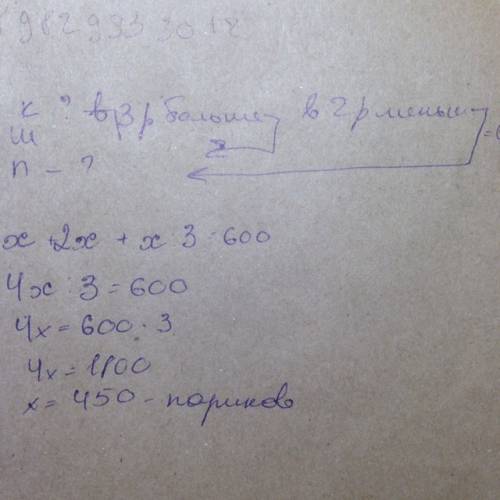 982993 3018
К ? в 3 р больше в 2 р меньше
Ш
П - ?
x + 2x + x 3 = 600
4x : 3 = 600
4x = 600 · 3
4x = 1100
x = 450 - париков